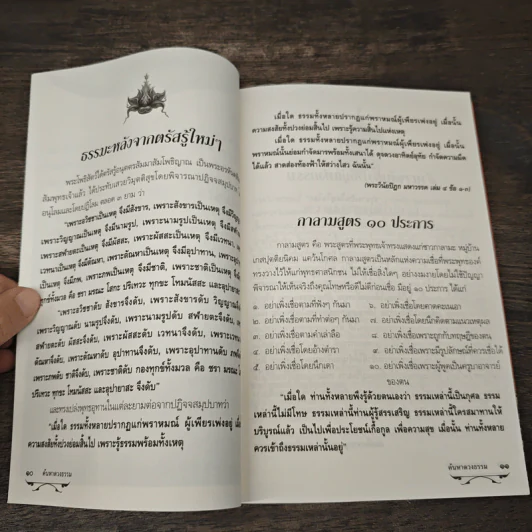 ธรรมะหลังจากตรัสรู้ใหม่ๆ
พระโพธิสัตว์ได้ตรัสรู้อนุตตรสัมมาสัมโพธิญาณ เป็นพระอรหันต
สัมพุทธเจ้าแล้ว ได้ประทับเสวยวิมุตติสุขโดยพิจารณาปฏิจจสมุปบาท
อนุโลมและโดยปฏิโลม ตลอด ๓ ยาม ว่า
"เพราะอวิชชาเป็นเหตุ จึงมีสังขาร, เพราะสังขารเป็นเหตุ จึงมีวิญญาณ
เพราะวิญญาณเป็นเหตุ จึงมีนามรูป, เพราะนามรูปเป็นเหตุ จึงมี
เพราะสฬายตนะเป็นเหตุ จึงมีผัสสะ, เพราะผัสสะเป็นเหตุ จึงมีเวทนา,
เวทนาเป็นเหตุ จึงมีตัณหา, เพราะตัณหาเป็นเหตุ จึงมีอุปาทาน,
เป็นเหตุ จึงมีภพ, เพราะภพเป็นเหตุ จึงมีชาติ, เพราะชาติเป็นเหตุ
ทุกข์ทั้งมวล คือ ชรา มรณะ โสกะ ปริเทวะ ทุกขะ โทมนัสสะ และอุปายาสะ
"เพราะอวิชชาดับ สังขารจึงดับ, เพราะสังขารดับ วิญญาณ
ดับ, เพราะวิญญาณดับ นามรูปจึงดับ, เพราะนามรูปดับ สฬายตนะจึงดับ,
สฬายตนะดับ ผัสสะจึงดับ, เพราะผัสสะดับ เวทนาจึงดับ, เพราะเวทนา
ตัณหาจึงดับ, เพราะตัณหาดับ อุปาทานจึงดับ, เพราะอุปาทานดับ ภพ
เพราะภพดับ ชาติจึงดับ, เพราะชาติดับ กองทุกข์ทั้งมวล คือ ชรา มรณะ
ปริเทวะ ทุกขะ โทมนัสสะ และอุปายาสะ จึงดับ"
และทรงเปล่งพุทธอุทานในแต่ละยามต่อจากปฏิจจสมุปบาทว่า
"เมื่อใด ธรรมทั้งหลายปรากฏแก่พราหมณ์ ผู้เพียรเพ่งอยู่ เมื่อนั้น
ความสงสัยทั้งปวงย่อมสิ้นไป เพราะรู้ธรรมพร้อมทั้งเหตุ
๑๐ ค้นหาดวงธรรม
เมื่อใด ธรรมทั้งหลายปรากฏแก่พราหมณ์ผู้เพียรเพ่งอยู่ เมื่อนั้น
ความสงสัยทั้งปวงย่อมสิ้นไป เพราะรู้ความสิ้นไปแห่งเหตุ
เมื่อใด ธรรมทั้งหลายปรากฏแก่พราหมณ์ผู้เพียรเพ่งอยู่ เมื่อนั้น
พราหมณ์นั้นย่อมกำจัดมารพร้อมทั้งเสนาได้ ดุจดวงอาทิตย์อุทัย กำจัดความมืด
ได้แล้ว สาดส่องท้องฟ้าให้สว่างไสว ฉันนั้น"
(พระวินัยปิฎก มหาวรรค เล่ม ๔ ข้อ ๑-๓)
กาลามสูตร ๑๐ ประการ
กาลามสูตร คือ พระสูตรที่พระพุทธเจ้าทรงแสดงแก่ชาวกาลามะ หมู่บ้าน
เกสปุตติยนิคม แคว้นโกศล กาลามสูตรเป็นหลักแห่งความเชื่อที่พระพุทธองค์
ทรงวางไว้ให้แก่พุทธศาสนิกชน ไม่ให้เชื่อสิ่งใดๆ อย่างงมงายโดยไม่ใช้ปัญญา
พิจารณาให้เห็นจริงถึงคุณโทษหรือดีไม่ดีก่อนเชื่อ มีอยู่ ๑๐ ประการ ได้แก่
๑. อย่าเพิ่งเชื่อตามที่ฟังๆ กันมา ๖. อย่าเพิ่งเชื่อโดยคาดคะเนเอา
๒. อย่าเพิ่งเชื่อตามที่ทำต่อๆ กันมา ๗. อย่าเพิ่งเชื่อโดยนึกคิดตามแนวเหตุผล
๓. อย่าเพิ่งเชื่อตามคำเล่าลือ ๘. อย่าเพิ่งเชื่อเพราะถูกกับทฤษฎีของตน
๔. อย่าเพิ่งเชื่อโดยอ้างตำรา ๙. อย่าเพิ่งเชื่อเพราะมีรูปลักษณ์ที่ควรเชื่อได้
๕. อย่าเพิ่งเชื่อโดยนึกเดา ๑๐. อย่าเพิ่งเชื่อเพราะผู้พูดเป็นครูบาอาจารย์
ของตน
"เมื่อใด ท่านทั้งหลายพึงรู้ด้วยตนเองว่า ธรรมเหล่านี้เป็นกุศล ธรรม
เหล่านี้ไม่มีโทษ ธรรมเหล่านี้ท่านผู้รู้สรรเสริญ ธรรมเหล่านี้ใครสมาทานให้
บริบูรณ์แล้ว เป็นไปเพื่อประโยชน์เกื้อกูล เพื่อความสุข เมื่อนั้น ท่านทั้งหลาย
ควรเข้าถึงธรรมเหล่านั้นอยู่"
ค้นหาดวงธรรม ๑๑